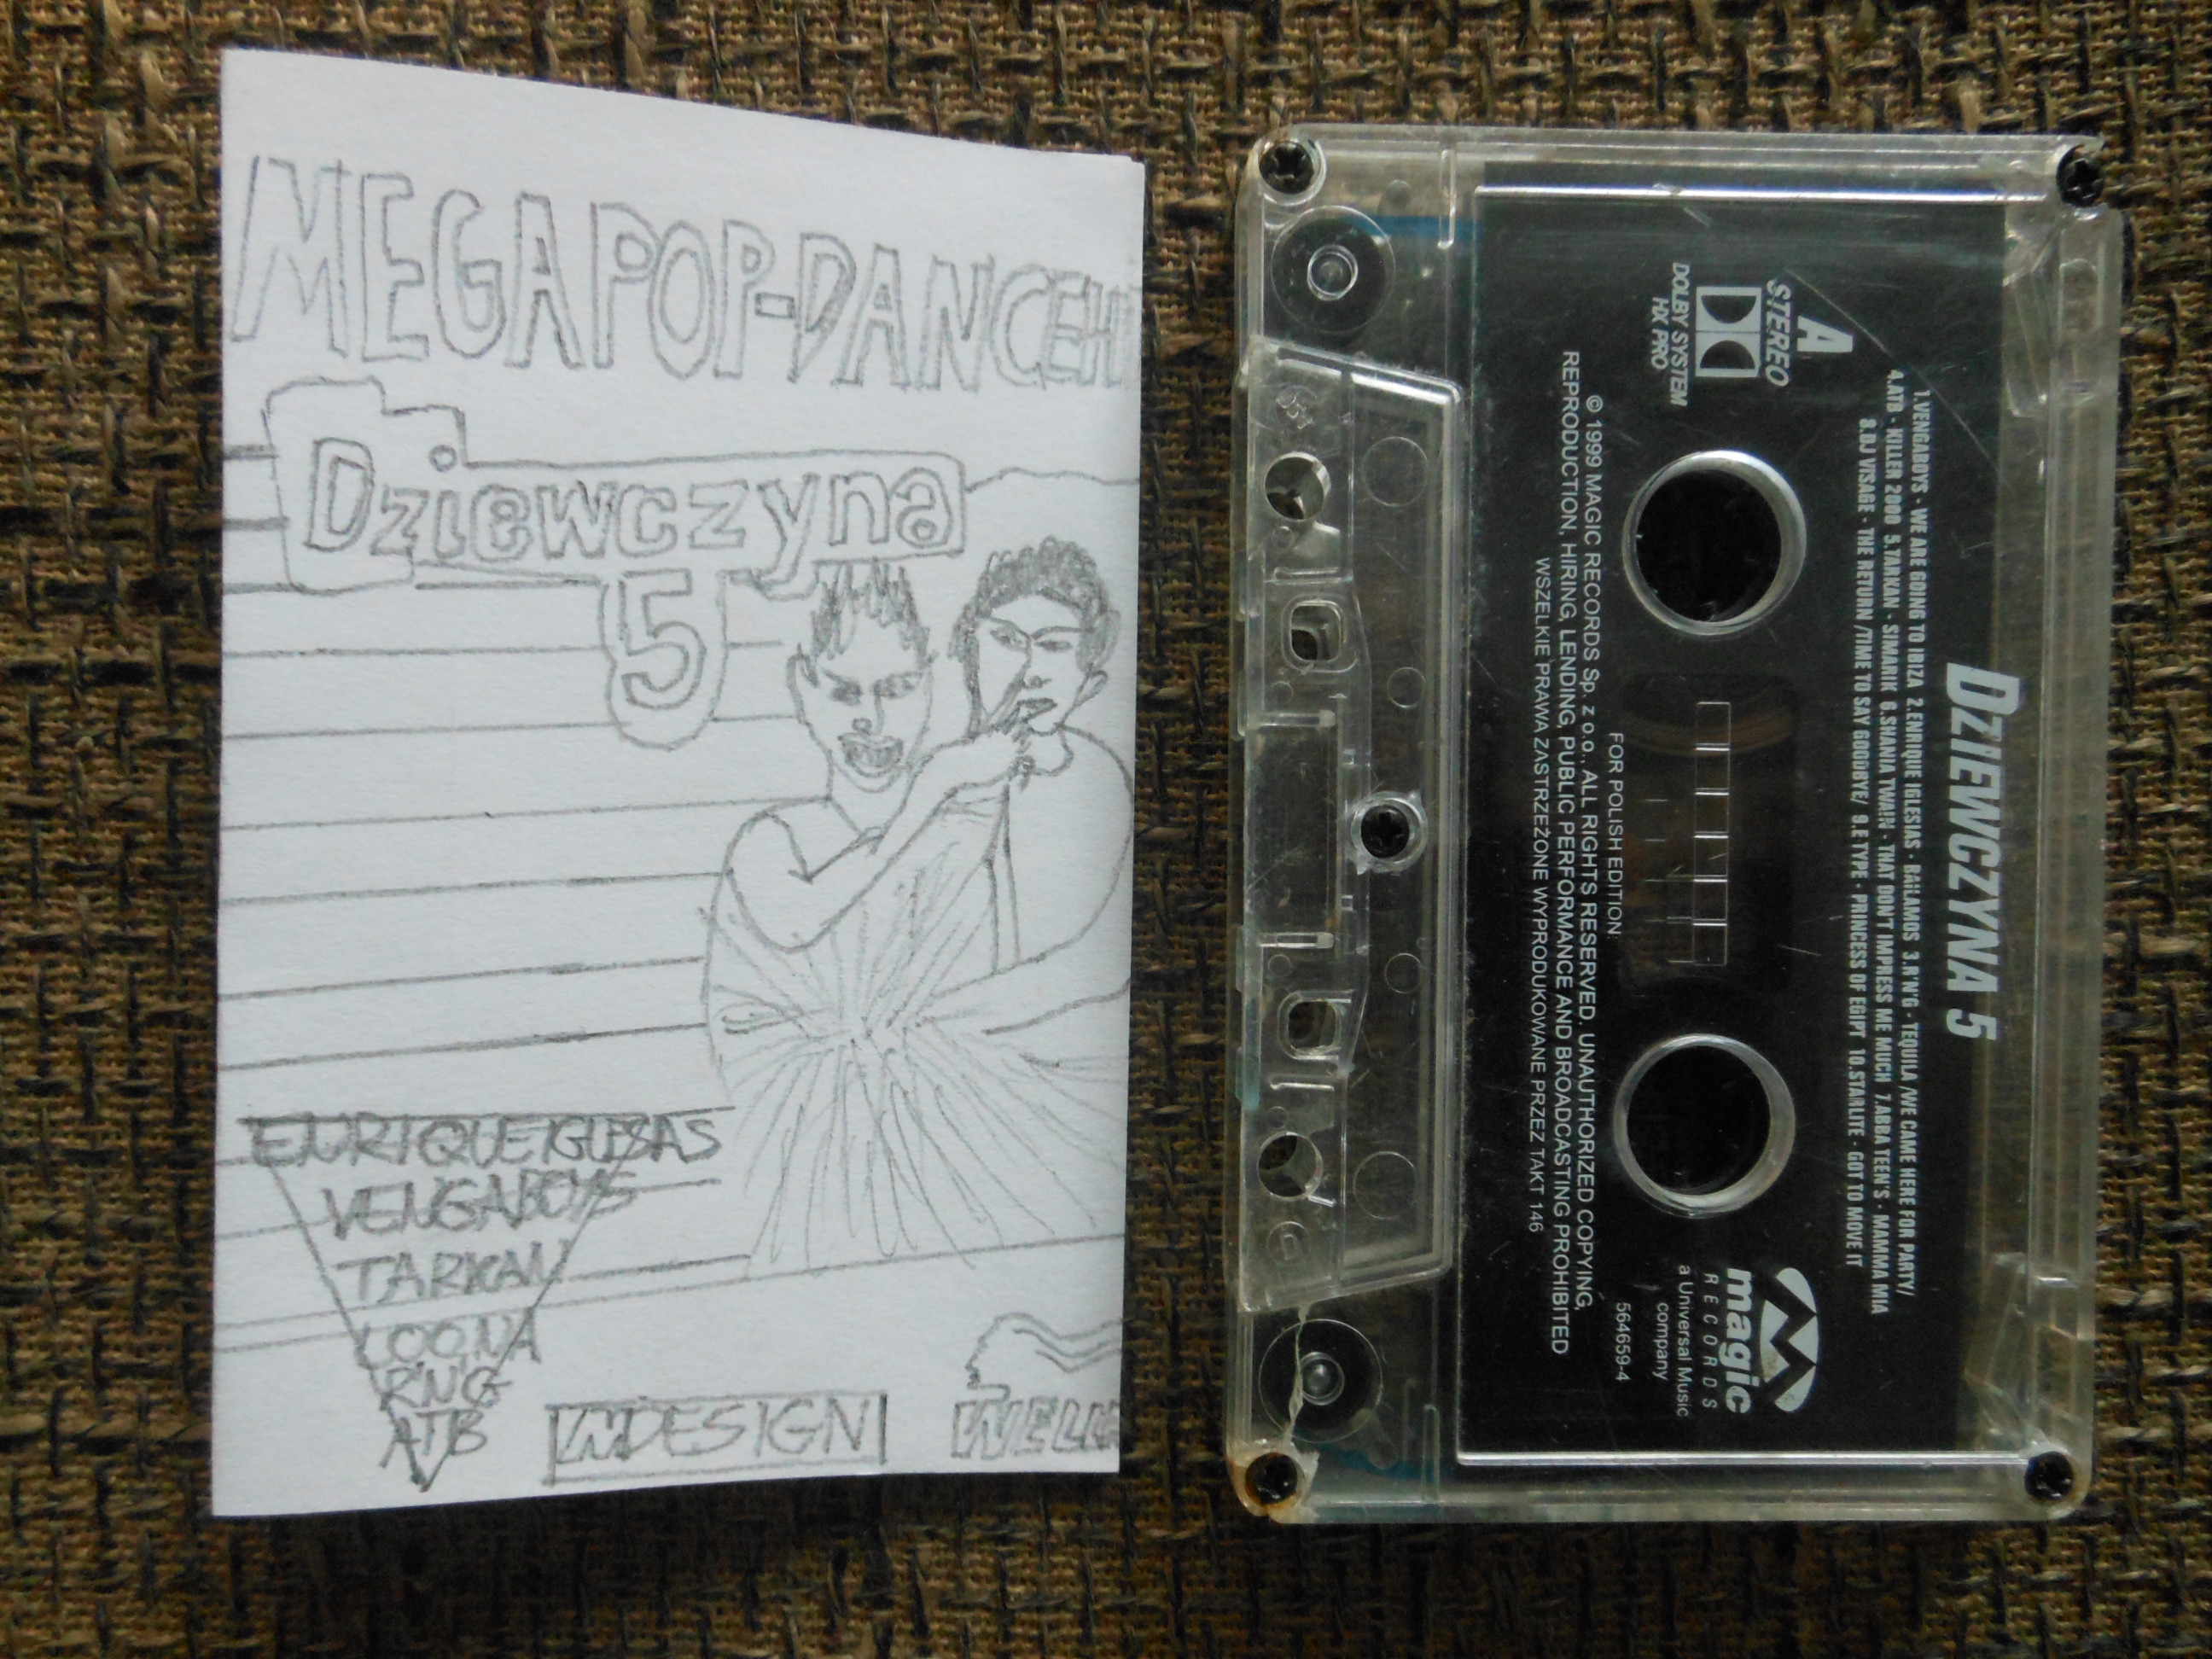 MEGAPOP-DANCEH
Dziewczyna
5
ENRIQUE IGLESAS
VENGABOYS
TARKAN
LOONA
RNG
ATB
INDESIGN
WELL
DZIEWCZYNA 5
1.VENGABOYS - WE ARE GOING TO IBIZA 2.ENRIQUE IGLESIAS - BAILAMOS 3.R'N'G - TEQUILA /WE CAME HERE FOR PARTY/
4.ATB - KILLER 2000 5.TARKAN - SIMARIK 6.SHANIA TWAIN - THAT DON'T IMPRESS ME MUCH 7.ABBA TEEN'S - MAMMA MIA
8.DJ VISAGE - THE RETURN /TIME TO SAY GOODBYE/ 9.E TYPE - PRINCESS OF EGIPT 10.STARLITE - GOT TO MOVE IT
A
STEREO
DOLBY SYSTEM
HX PRO
magic
RECORDS
a Universal Music
company
564659-4
FOR POLISH EDITION:
© 1999 MAGIC RECORDS Sp. z o.o., ALL RIGHTS RESERVED. UNAUTHORIZED COPYING,
REPRODUCTION, HIRING, LENDING, PUBLIC PERFORMANCE AND BROADCASTING PROHIBITED
WSZELKIE PRAWA ZASTRZEŻONE WYPRODUKOWANE PRZEZ TAKT 146